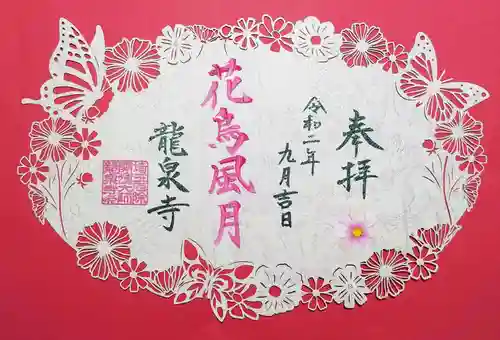 奉拝
令和二年
九月吉日
花鳥風月
龍泉寺